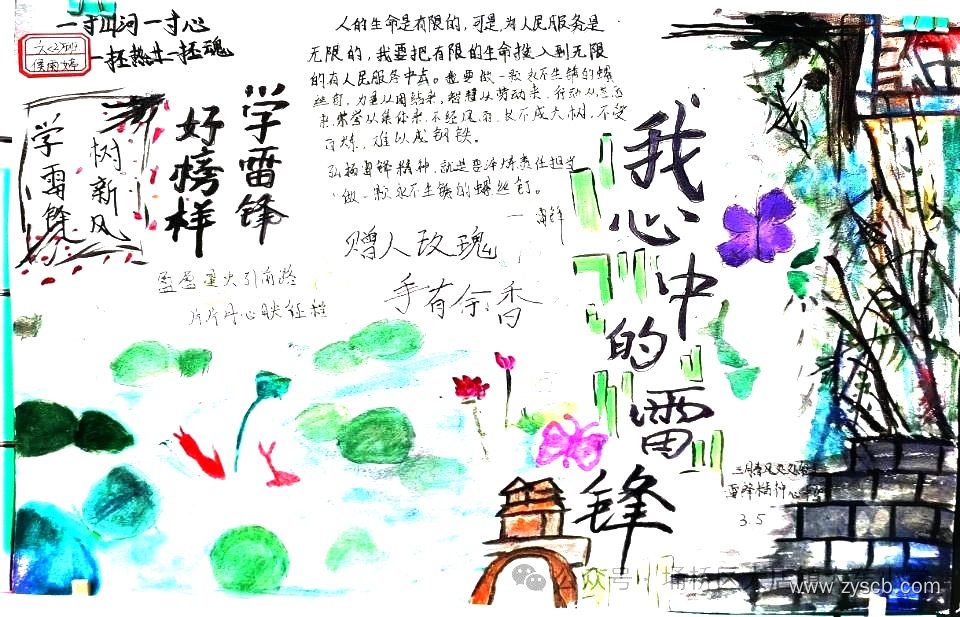 一寸山河一寸心
一抔热土一抔魂
学雷锋
树新风
学雷锋
好榜样
人的生命是有限的，可是，为人民服务是
无限的，我要把有限的生命投入到无限
的有人民服务中去。我要做一颗永不生锈的螺
丝钉，力量从团结来，智慧从劳动来，行动从思想
来，荣誉从集体来。不经风雨，长不成大树，不受
百炼，难以成钢铁。
弘扬雷锋精神，就是要涵养责任担当
做一颗永不生锈的螺丝钉。
一雷锋
赠人玫瑰
手有余香
盈盈星火引前路
片片丹心映征程
我心中的雷锋
三月春风处处
雷锋精神心中
3.5
公众号
www.zyscb.com